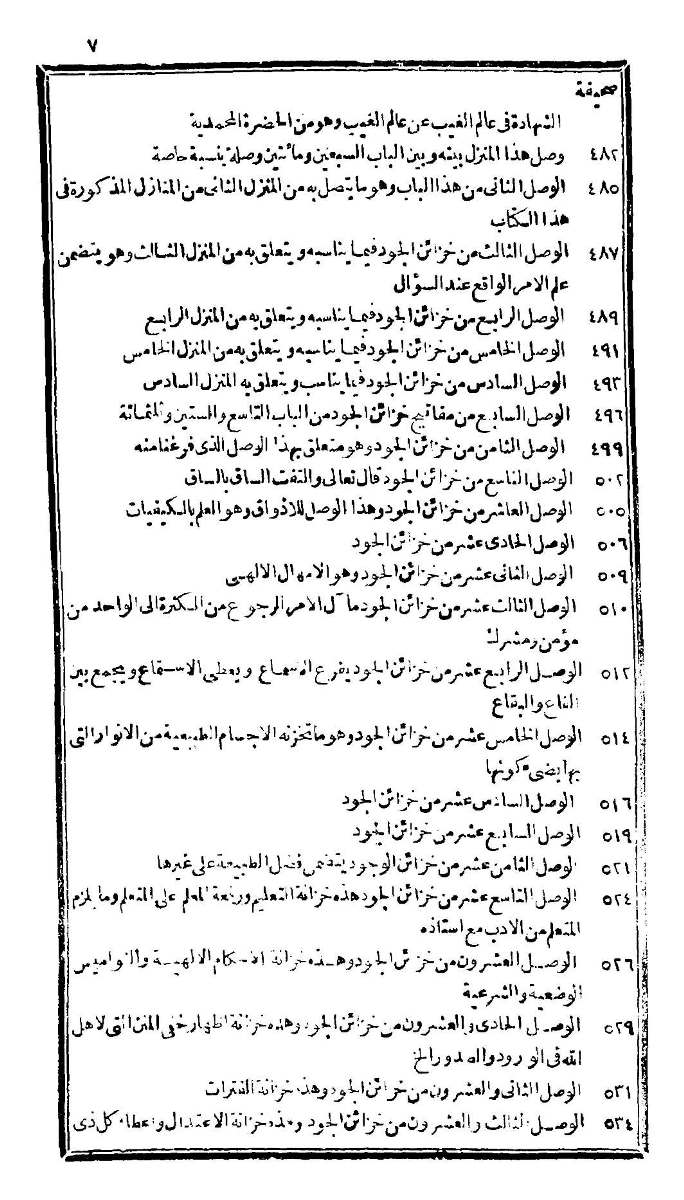 ٧
صحيفة
الشهادة فى عالم الغيب عن عالم الغيب وهو من الحضرة المحمدية
٤٨٢ وصل هذا المنزل بينه وبين الباب السبعين ومائتين وصلة بنسبة خاصة
٤٨٥ الوصل الثانى من هذا الباب وهو ما يتصل به من المنزل الثانى من المنازل المذكورة فى
هذا الكتاب
٤٨٧ الوصل الثالث من خزائن الجود فيما يناسبه ويتعلق به من المنزل الثالث وهو يتضمن
علم الامر الواقع عند السؤال
٤٨٩ الوصل الرابع من خزائن الجود فيما يناسبه ويتعلق به من المنزل الرابع
٤٩١ الوصل الخامس من خزائن الجود فيما يناسبه ويتعلق به من المنزل الخامس
٤٩٣ الوصل السادس من خزائن الجود فيما يناسب ويتعلق به المنزل السادس
٤٩٦ الوصل السابع من مفاتيح خزائن الجود من الباب التاسع والستين والثلثمائة
٤٩٩ الوصل الثامن من خزائن الجود وهو متعلق بهذا الوصل الذى فرغنا منه
٥٠٢ الوصل التاسع من خزائن الجود قال تعالى والتفت الساق بالساق
٥٠٥ الوصل العاشر من خزائن الجود وهذا الوصل للاذواق وهو العلم بالكيفيات
٥٠٦ الوصل الحادى عشر من خزائن الجود
٥٠٩ الوصل الثانى عشر من خزائن الجود وهو الامهال الالهى
٥١٠ الوصل الثالث عشر من خزائن الجود ما آل الامر الرجوع من الكثرة الى الواحد من
مؤمن ومشرك
٥١٢ الوصل الرابع عشر من خزائن الجود يفرع الاسماع ويعطى الاستماع ويجمع بين
القاع والبقاع
٥١٤ الوصل الخامس عشر من خزائن الجود وهو ما تخزنه الاجسام الطبيعية من الانوار التى
بها يضىء كونها
٥١٦ الوصل السادس عشر من خزائن الجود
٥١٩ الوصل السابع عشر من خزائن الجود
٥٢١ الوصل الثامن عشر من خزائن الوجود يتضمن فضل الطبيعة على غيرها
٥٢٤ الوصل التاسع عشر من خزائن الجود هذه خزانة التعليم ورفعة المعلم على المتعلم وما يلزم
المتعلم من الادب مع استاذه
٥٢٦ الوصل العشرون من خزائن الجود وهذه خزانة الاحكام الالهية والنواميس
الوضعية والشرعية
٥٢٩ الوصل الحادى والعشرون من خزائن الجود وهذه خزانة اظهار خفى المنن التى لاهل
الله فى الورود والصدور الخ
٥٣١ الوصل الثانى والعشرون من خزائن الجود وهذه خزانة الفترات
٥٣٤ الوصل الثالث والعشرون من خزائن الجود وهذه خزانة الاعتدال واعطاء كل ذى